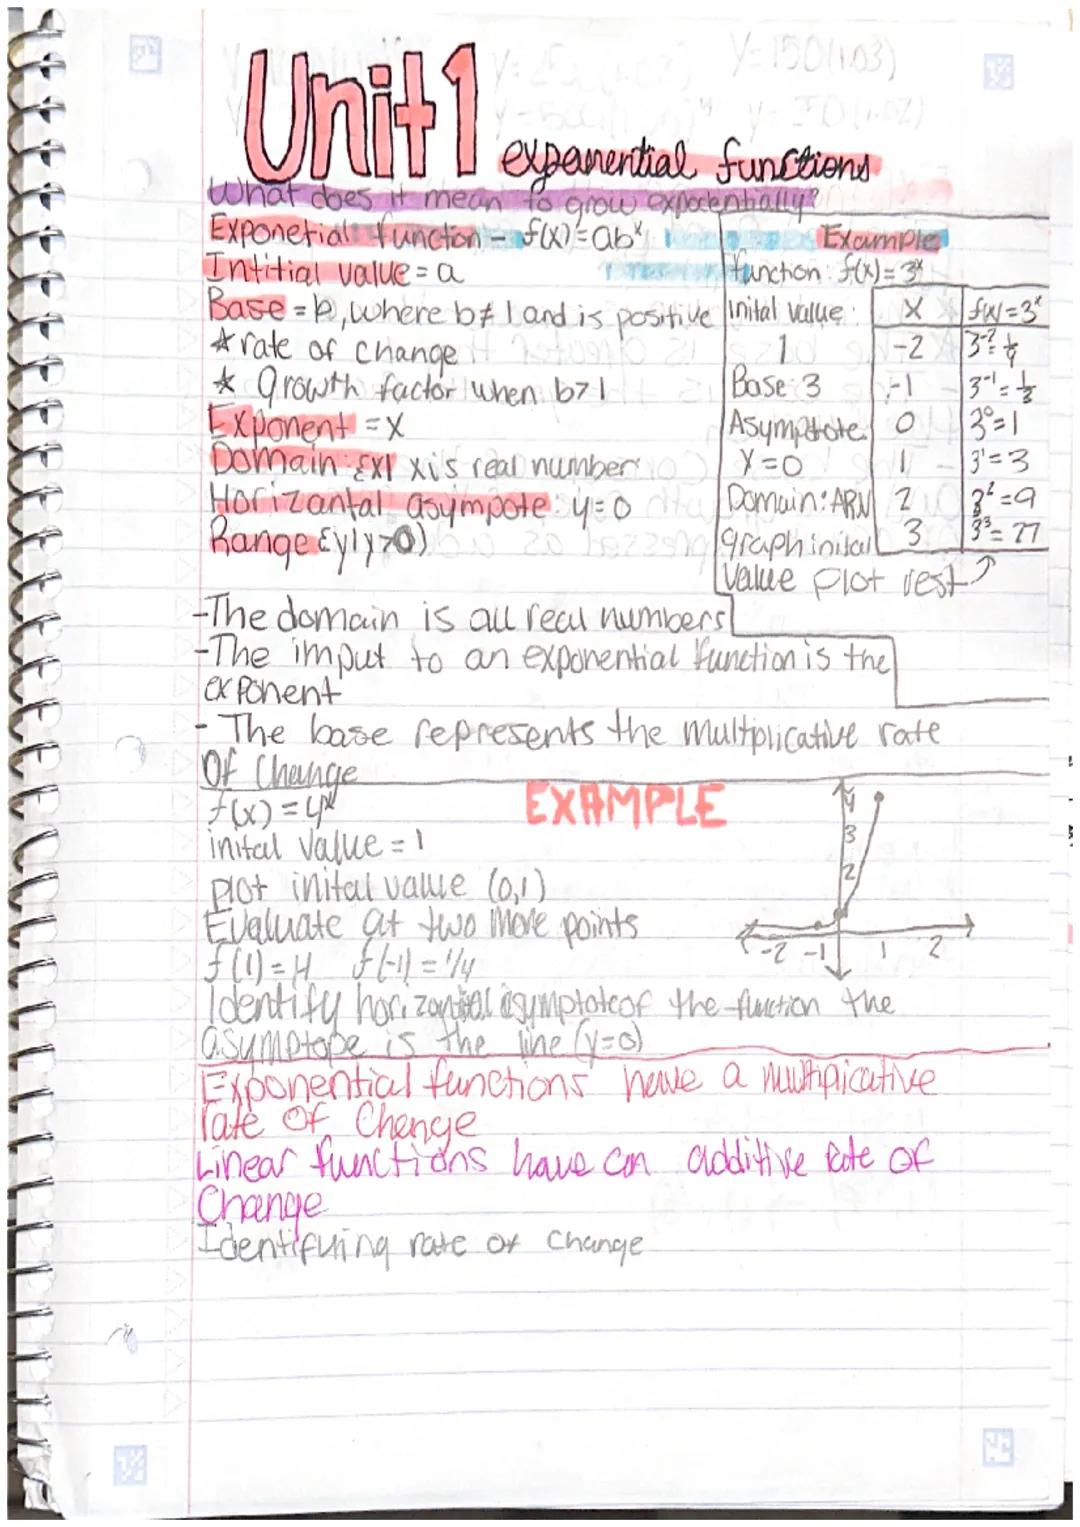 Unit 1 exponential functions
What does it mean to grow expotentially?
Exponetial function - f(x)=ab^x
Intitial value = a
Base = b, where b≠1 and is positive
* rate of change
* Growth factor when b>1
Exponent = x
Domain: {x| x is real number
Horizantal asympote: y=0
Range {y|y>0)
Example
function: f(x)=3^x
Inital value:
1
Base: 3
Asymptote
Y=0
Domain: ARN
graph inital
value plot rest
X f(x)=3^x
-2 3^-2=1/9
-1 3^-1=1/3
0 3^0=1
1 3^1=3
2 3^2=9
3 3^3=27
-The domain is all real numbers
-The imput to an exponential function is the
exponent
- The base represents the multplicative rate
Of Change
EXAMPLE
f(x)=4^x
inital value = 1
plot inital value (0,1)
Evaluate at two more points
f(1)=4 f(-1)=1/4
Identify horizontal asymptote of the function the
asymptope is the line (y=0)
4
3
2
-2 -1 1 2
Exponential functions have a multiplicative
rate Of Change
Linear functions have an additive Rate OF
Change
Identifying rate of Change
Y=150(1.03)